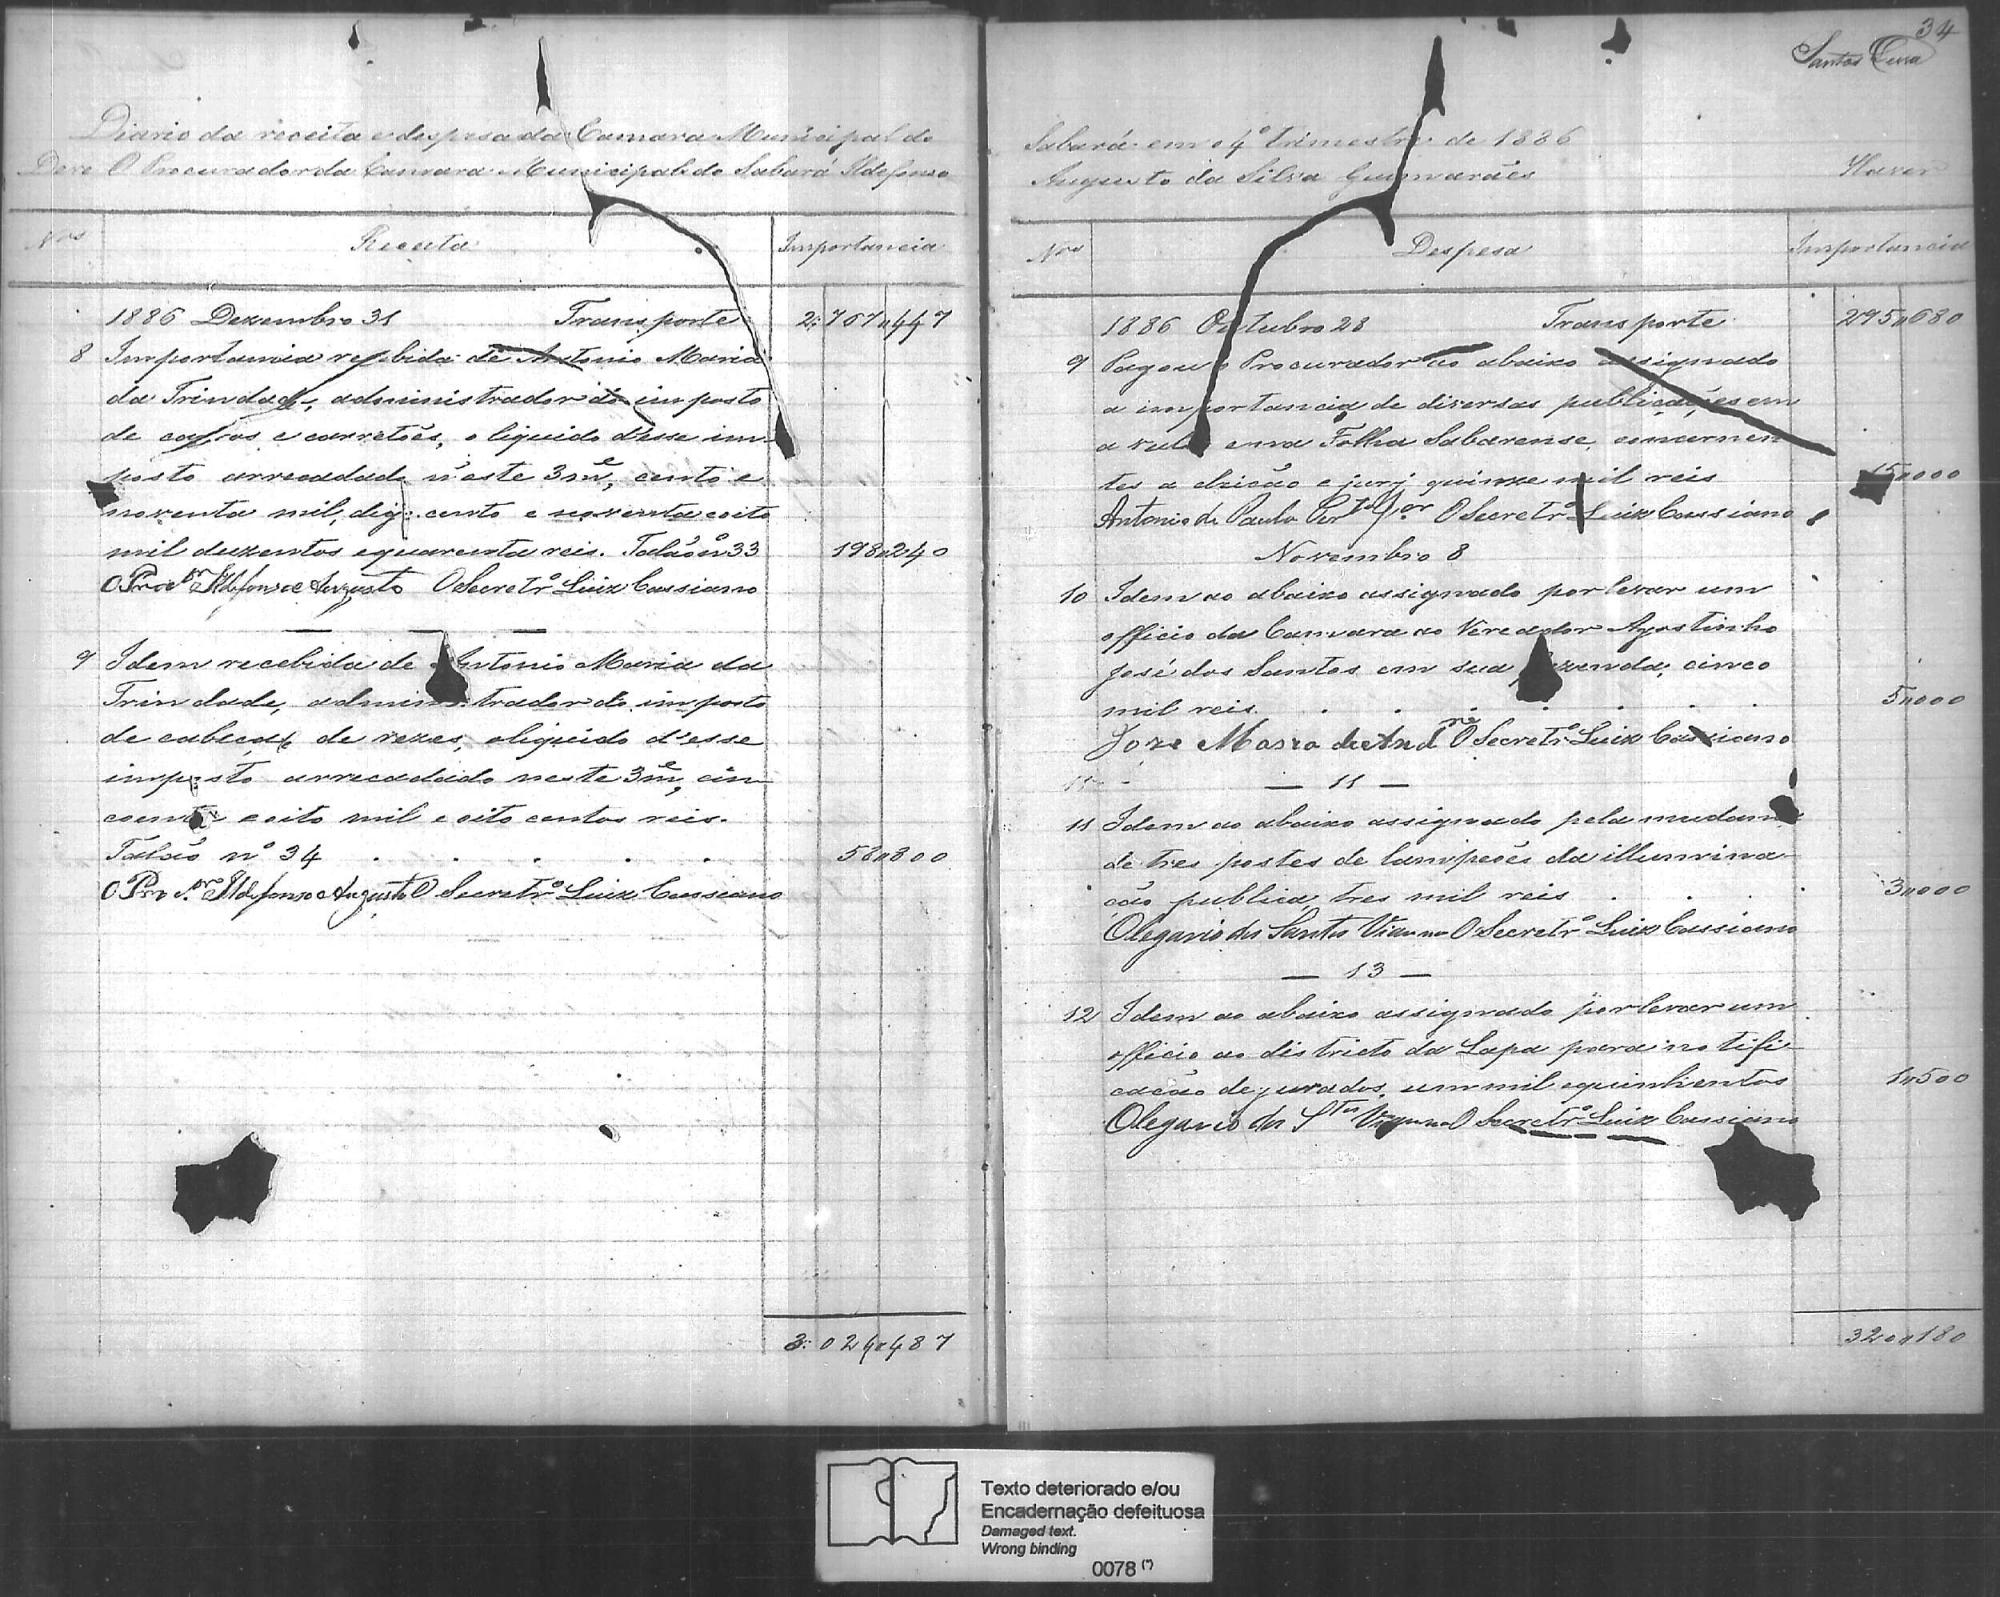 34
Santos Terra
Diario da receita e despesa da Camara Municipal de
Deve O Procurador da Camara Municipal de Sabará Ildefonso
Nros Receita Importancia
1886 Dezembro 31 Transporte 2:767"447
8 Importancia recebida de Antonio Maria
da Trindade, administrador do imposto
de carros e carretões, o liquido d'esse im-
posto arrecadado n'este 3me, cento e
noventa mil, digo cento e noventa e oito
mil duzentos e quarenta reis. Talão nº 33 198"240
O Procor Ildefonso Augusto O Secretrº Luiz Cassiano
9 Idem recebida de Antonio Maria da
Trindade, administrador do imposto
de cabeças de rezes, o liquido d'esse
imposto arrecadado neste 3me, cin-
coenta e oito mil e oito centos reis.
Talão nº 34 . . . . . 58"800
O Procor Ildefonso Augusto O Secretrº Luiz Cassiano
3:024"487
Sabará em o 4º trimestre de 1886
Augusto da Silva Guimarães Haver
Nros Despesa Importancia
1886 Outubro 28 Transporte 295"680
9 Pagou o Procurador ao abaixo assignado
a importancia de diversas publicações em
avulso e na Folha Sabarense, concernen-
tes a eleição e jury quinze mil reis 15"000
Antonio de Paula O Secretrº Luiz Cassiano
Novembro 8
10 Idem ao abaixo assignado por levar um
officio da Camara ao Vereador Agostinho
José dos Santos em sua fazenda, cinco
mil reis. . . . . . 5"000
Joze Maria de Andre O Secretrº Luiz Cassiano
— 11 —
11 Idem ao abaixo assignado pela mudança
de tres postes de lampeões da illumina-
ção publica, tres mil reis . . . 3"000
Olegario dos Santos Vianna O Secretrº Luiz Cassiano
— 13 —
12 Idem ao abaixo assignado por levar um
officio ao districto da Lapa para notifi-
cação de jurados, um mil e quinhentos 1"500
Olegario dos Stos Vianna O Secretrº Luiz Cassiano
320"180
Texto deteriorado e/ou
Encadernação defeituosa
Damaged text.
Wrong binding
0078 (*)